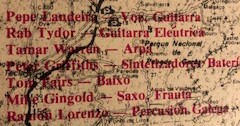 Pepe Landeira — Voz, Guitarra
Rab Tydor — Guitarra Eleutrica
Tamar Warren — Arpa
Parque Nacional
Peter Griffiths — Sintetizadores Bateri
Tom Fairs — Baixo
Mike Gingold — Saxo, Frauta
Ramón Lorenzo — Percusión, Gateua